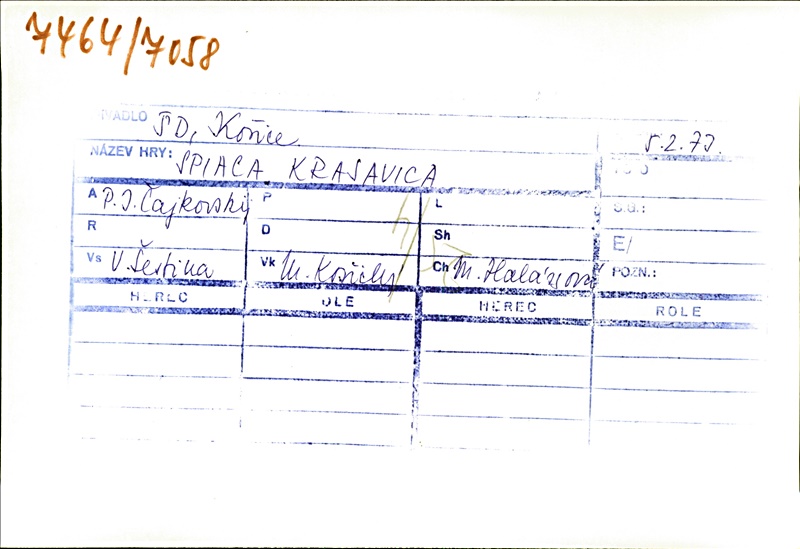 7464/7058
DIVADLO ŠD, Košice
5.2.73.
NÁZEV HRY: SPIACA KRASAVICA
A P.I. Čajkovský P L S.G.:
R D Sh E/
Vs V. Šestina Vk M. Košický Ch M. Halászová POZN.:
HEREC OLE HEREC ROLE